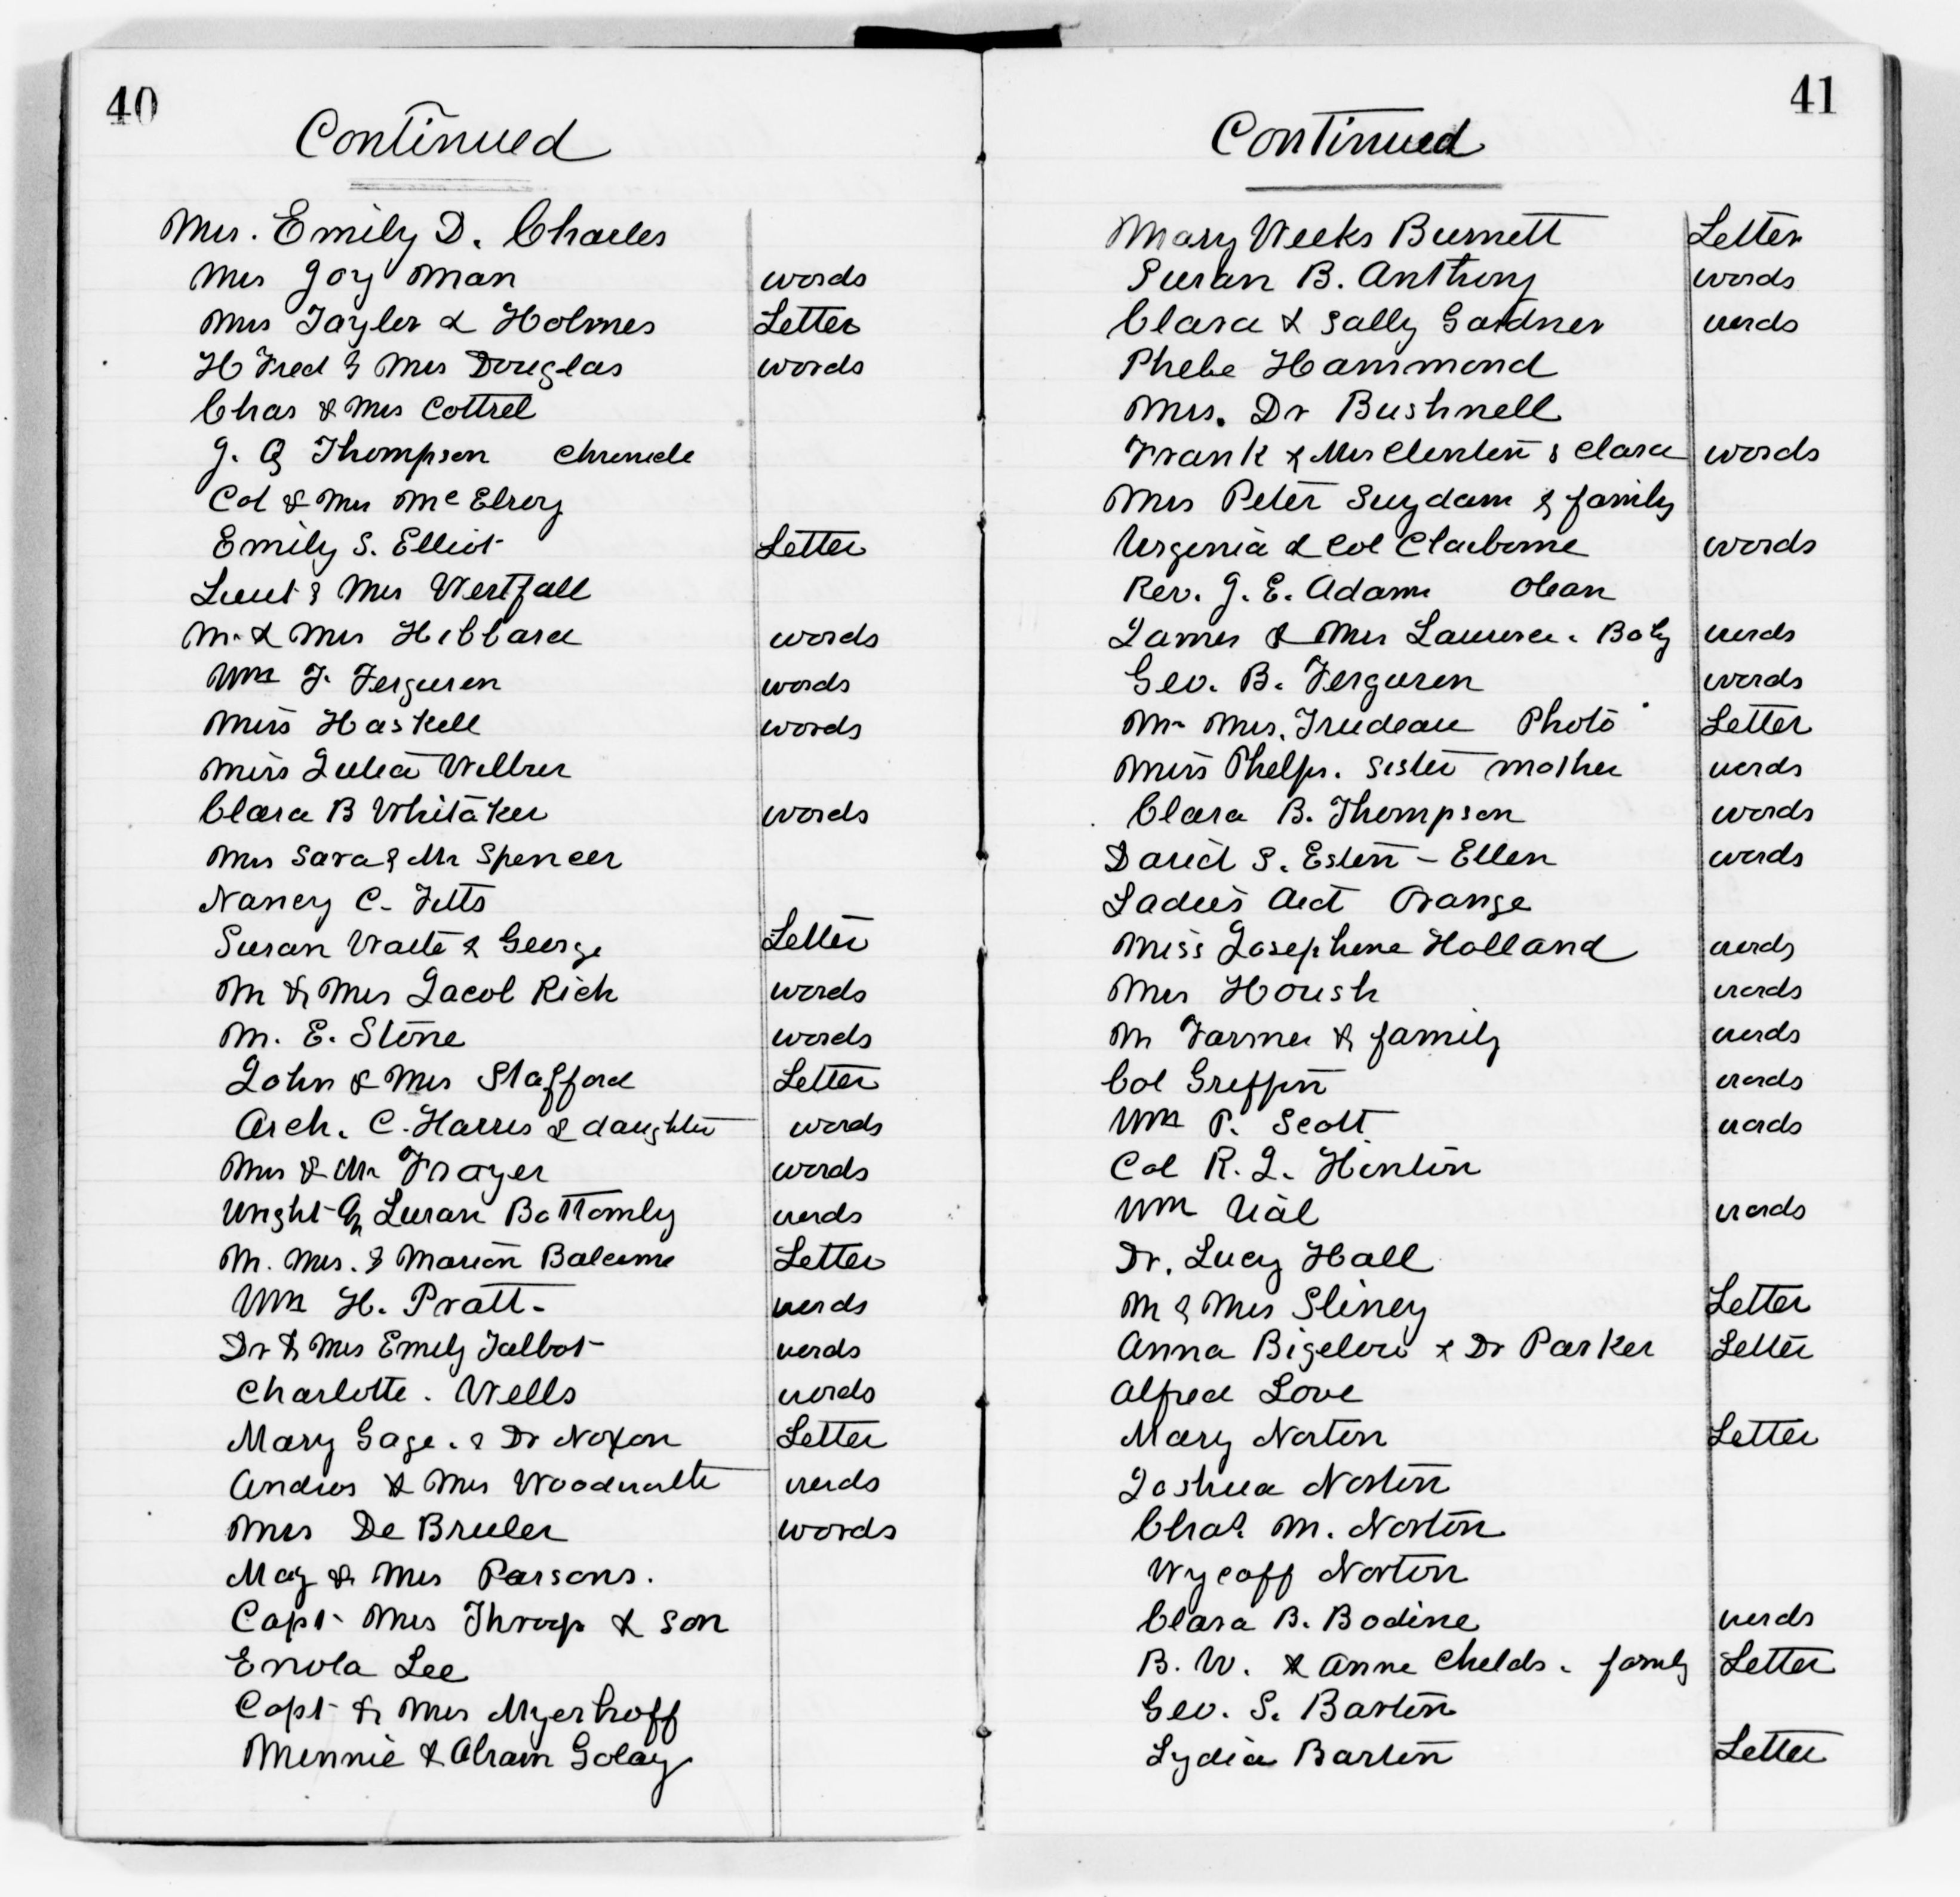 40
Continued
Mrs. Emily D. Charles
Mrs Joy Man words
Mrs Tayler & Holmes Letter
H Fred & Mrs Douglas words
Chas & Mrs Cottrel
J. Q Thompson Chronicle
Col & Mrs McElroy
Emily S. Elliot Letter
Lieut & Mrs Westfall
Mr & Mrs Hibbard words
Wm F. Ferguson words
Miss Haskell words
Miss Julia Wilbur
Clara B Whitaker words
Mrs Sara & Mr Spencer
Nancy C. Fitts
Susan Waite & George Letter
M & Mrs Jacob Rich words
M. E. Stone words
John & Mrs Stafford Letter
Arch. C. Harris & daughter words
Mrs & Mr Frayer words
Wright & Luran Bottomly words
M. Mrs. & Marion Balcome Letter
Wm H. Pratt - words
Dr & Mrs Emily Talbot words
Charlotte. Wells words
Mary Gage. & Dr Noxon Letter
Andros & Mrs words
Mrs De Bruler words
Maj & Mrs Parsons.
Capt Mrs Throop & son
Enola Lee
Capt & Mrs Myerhoff
Minnie & Abram Golay
41
Continued
Mary Weeks Burnett Letter
Susan B. Anthony words
Clara & Sally Gardner words
Phebe Hammond
Mrs. Dr Bushnell
Frank & Mrs Clinton & Clara words
Mrs Peter Suydam & family
Virginia & Col Claiborne words
Rev. J. E. Adams Olean
James & Mrs Laurence. words
Geo. B. Ferguson words
Mr Mrs. Trudeau Photo Letter
Miss Phelps. Sister mother words
Clara B. Thompson words
David S. Estin - Ellen words
Ladies Aid Orange
Miss Josephine Holland words
Mrs Housh words
M Farmer & family words
Col Griffin words
Wm P. Scott words
Col R. J. Hinton
Wm Vial words
Dr. Lucy Hall
M & Mrs Sliney Letter
Anna Bigelow & Dr Parker Letter
Alfred Love
Mary Norton Letter
Joshua Norton
Chas. M. Norton
Wycoff Norton
Clara B. Bodine words
B. W. & Anne Childs. family Letter
Geo. S. Barton
Lydia Barton Letter